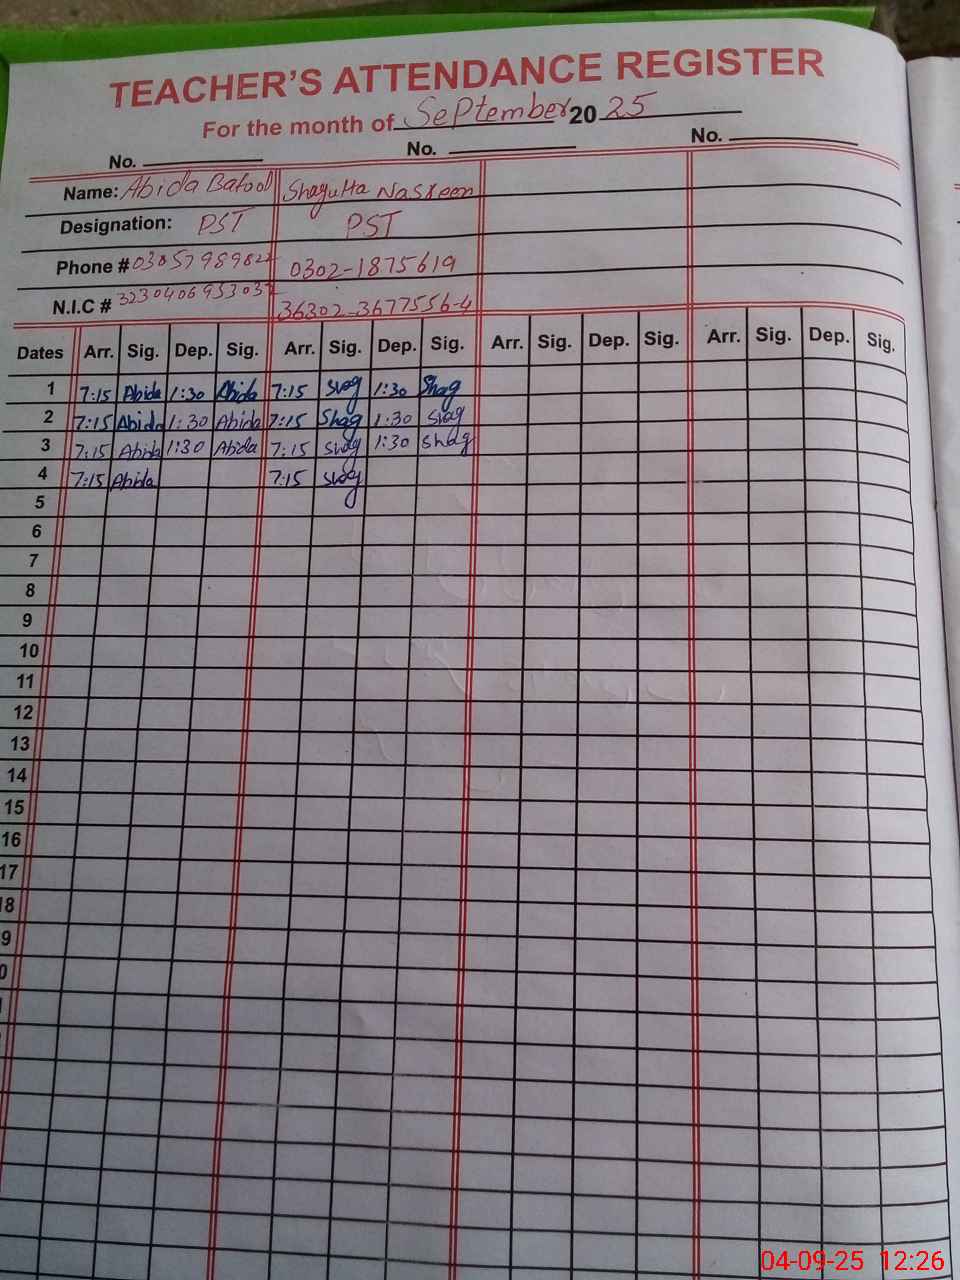 TEACHER'S ATTENDANCE REGISTER
For the month of September 20 25
No. No. No.
Name: Abida Batool Shagufta Nasreen
Designation: PST PST
Phone # 0302-1875619
N.I.C # 36302-3677556-4
Dates Arr. Sig. Dep. Sig. Arr. Sig. Dep. Sig. Arr. Sig. Dep. Sig. Arr. Sig. Dep. Sig.
1 7:15 Abida 1:30 Abida 7:15 Shag 1:30 Shag
2 7:15 Abida 1:30 Abida 7:15 Shag 1:30 Shag
3 7:15 Abida 1:30 Abida 7:15 Shag 1:30 Shag
4 7:15 Abida 7:15 Shag
5
6
7
8
9
10
11
12
13
14
15
16
17
18
9
0
04-09-25 12:26